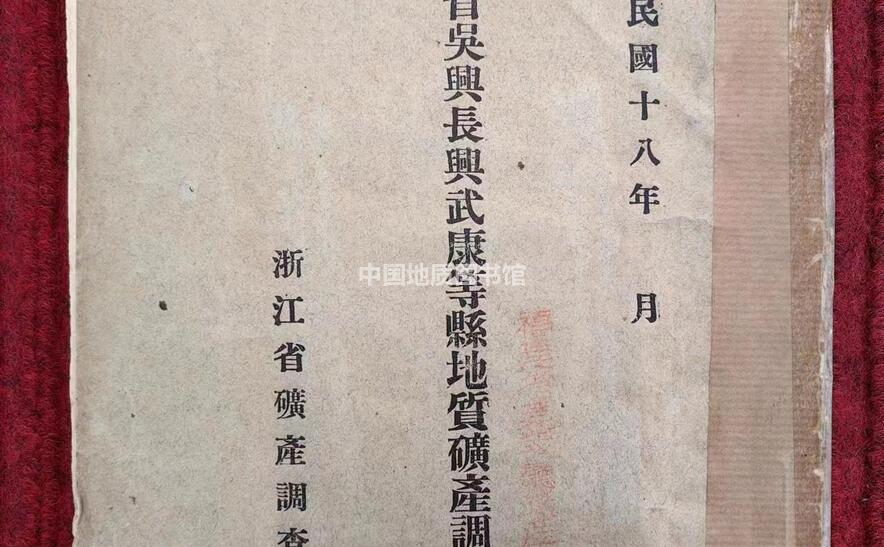 民國十八年 月
省吳興長興武康等縣地質礦產調
浙江省礦產調查
中国地质图书馆